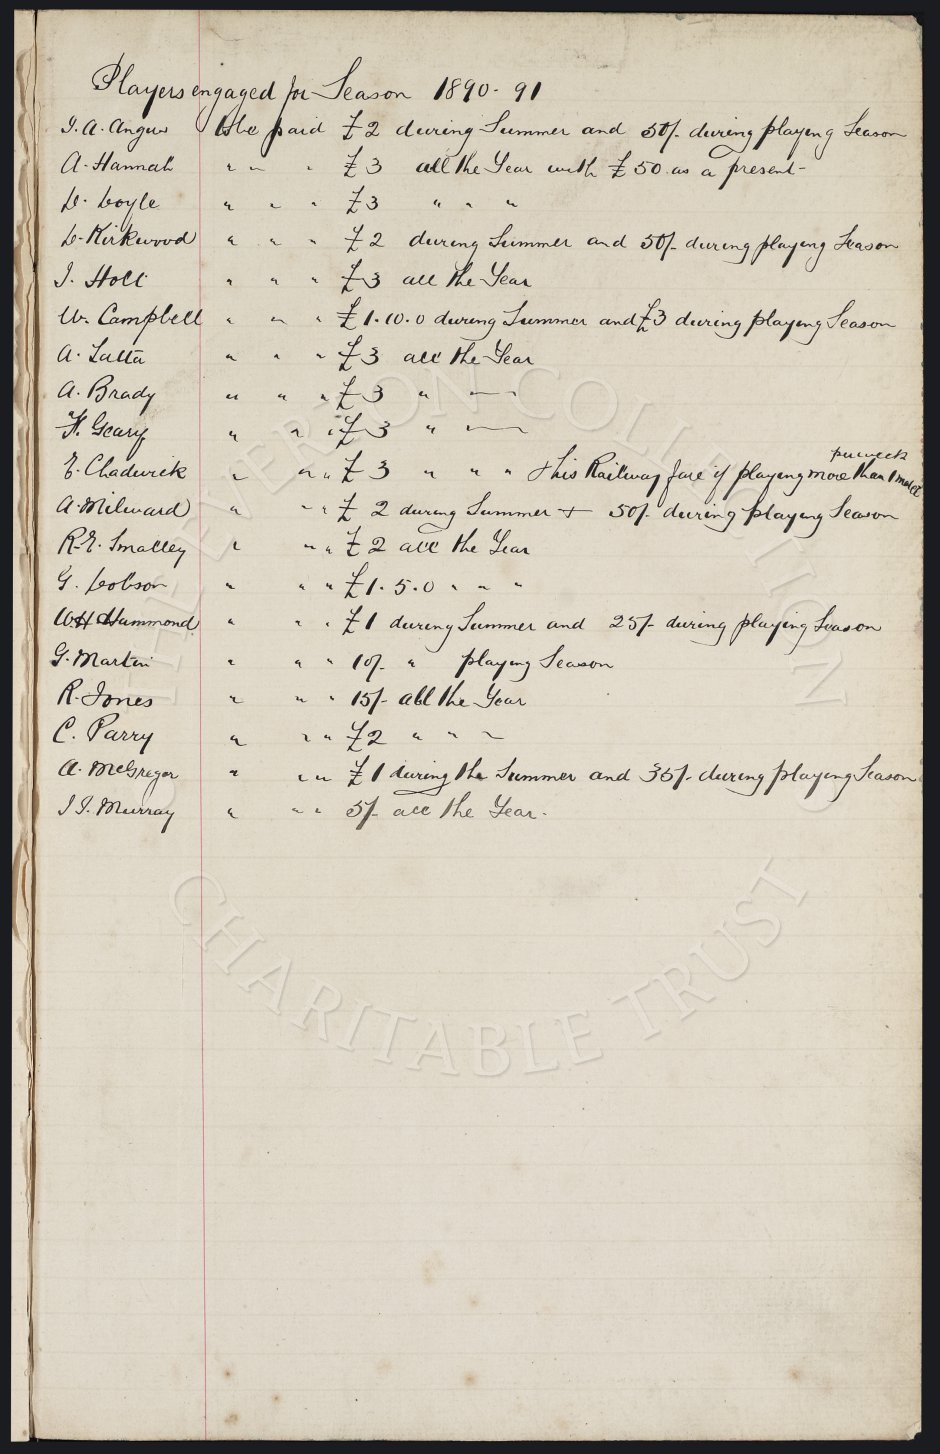 Players engaged for Season 1890-91
J. A. Angus to be paid £2 during Summer and 50/- during playing Season
A. Hannah " " " £3 all the Year with £50 as a present-
D. Doyle " " " £3 " " "
D. Kirkwood " " " £2 during Summer and 50/- during playing Season
J. Holt " " " £3 all the Year
W. Campbell " " " £1.10.0 during Summer and £3 during playing Season
A. Latta " " " £3 all the Year
A. Brady " " " £3 " "
F. Geary " " " £3 " "
per week
E. Chadwick " " " £3 " " " + his Railway fare if playing more than 1 match
A. Milward " " " £2 during Summer + 50/- during playing Season
R. E. Smalley " " " £2 all the Year
G. Dobson " " " £1.5.0 " " "
W H Hammond " " " £1 during Summer and 25/- during playing Season
G. Martin " " " 10/- " playing Season
R. Jones " " " 15/- all the Year
C. Parry " " " £2 " " "
A. McGregor " " " £1 during the Summer and 35/- during playing Season
J J. Murray " " " 5/- all the Year.
THE EVERTON COLLECTION
CHARITABLE TRUST